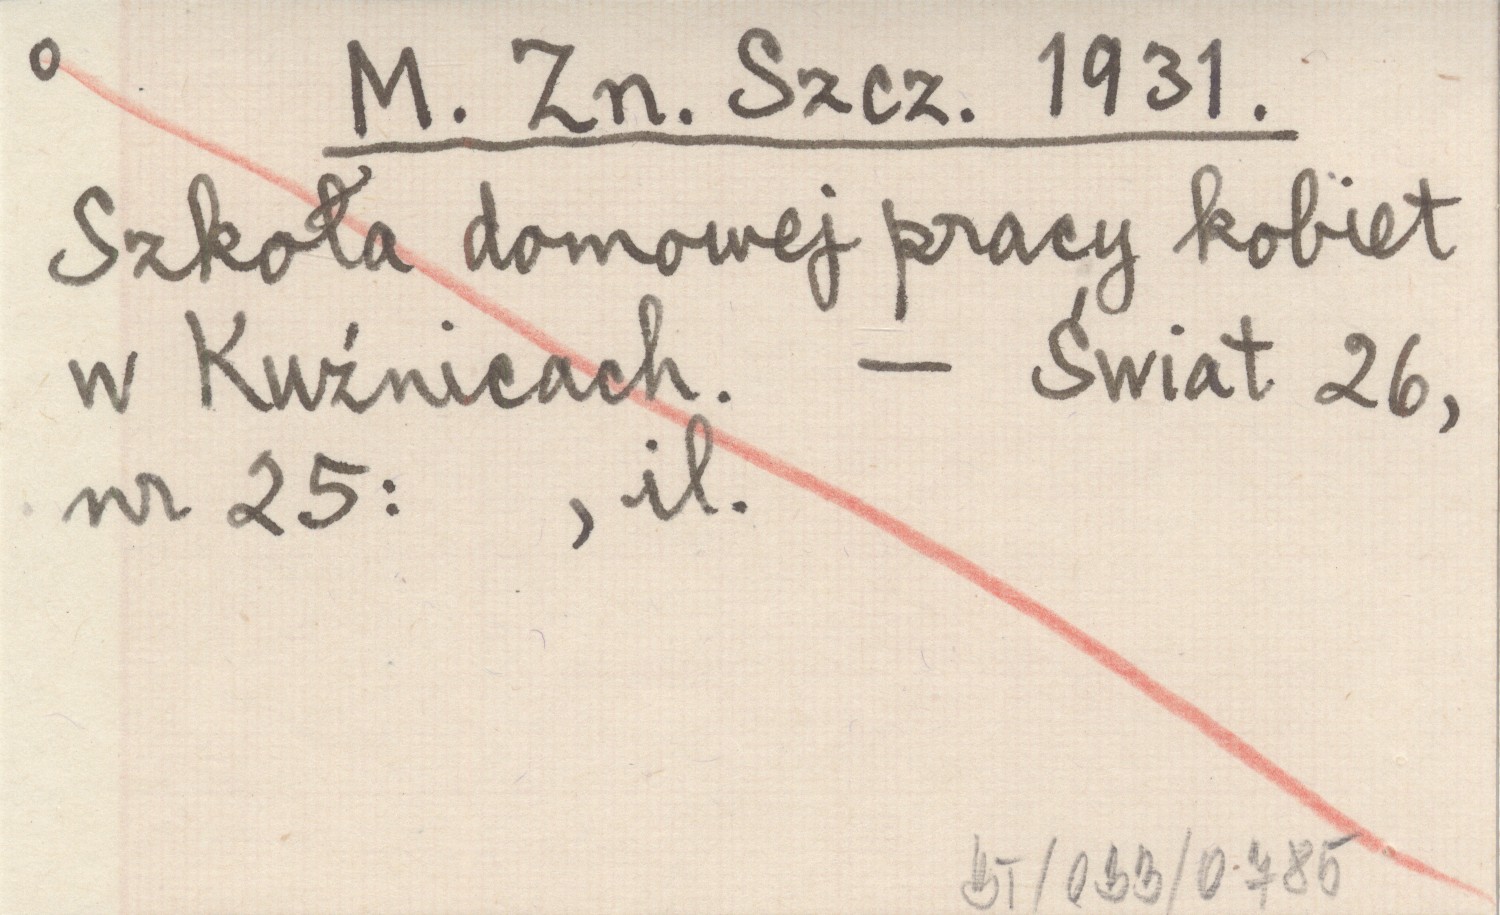 o M. Zn. Szcz. 1931.
Szkoła domowej pracy kobiet
w Kuźnicach. — Świat 26,
nr 25: , il.